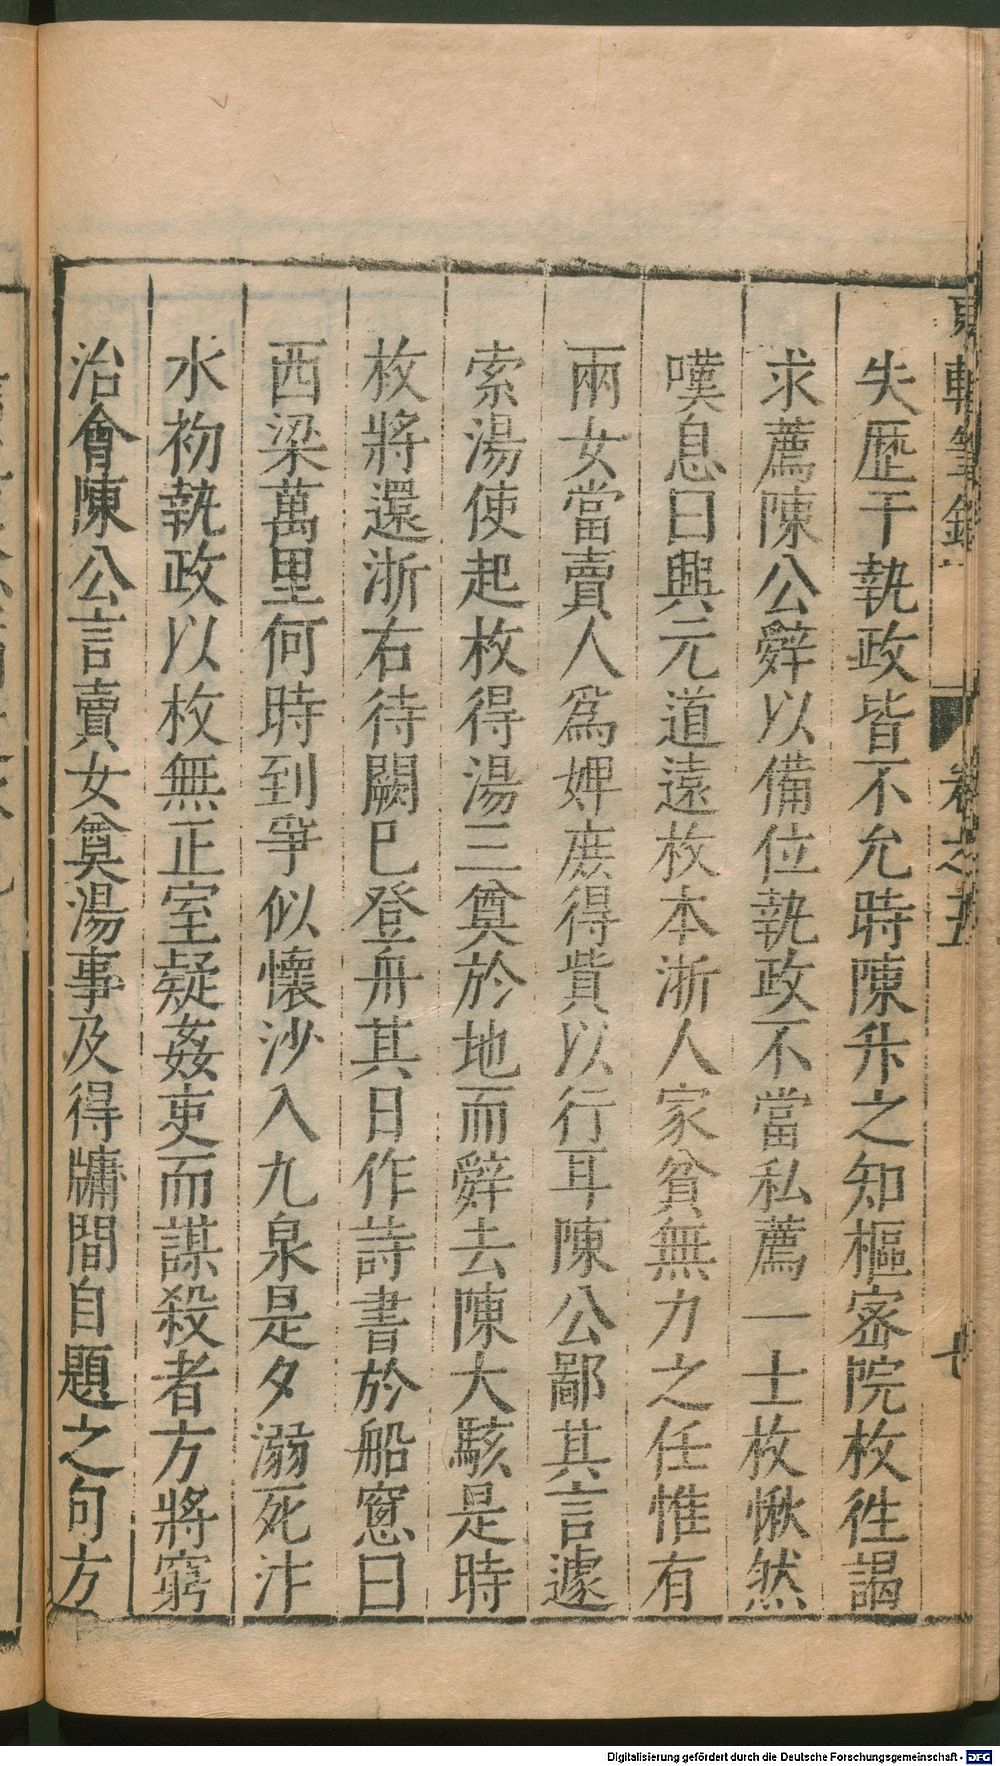 東軒筆錄 卷之五
失歷干執政皆不允時陳升之知樞密院枚徃謁
求薦陳公辭以備位執政不當私薦一士枚愀然
嘆息曰興元道遠枚本浙人家貧無力之任惟有
兩女當賣人爲婢庶得貲以行耳陳公鄙其言遽
索湯使起枚得湯三奠於地而辭去陳大駭是時
枚將還浙右待闕巳登舟其日作詩書於船窓曰
西梁萬里何時到爭似懷沙入九泉是夕溺死汴
水初執政以枚無正室疑姦吏而謀殺者方將窮
治會陳公言賣女奠湯事及得牗間自題之句方
Digitalisierung gefördert durch die Deutsche Forschungsgemeinschaft - DFG